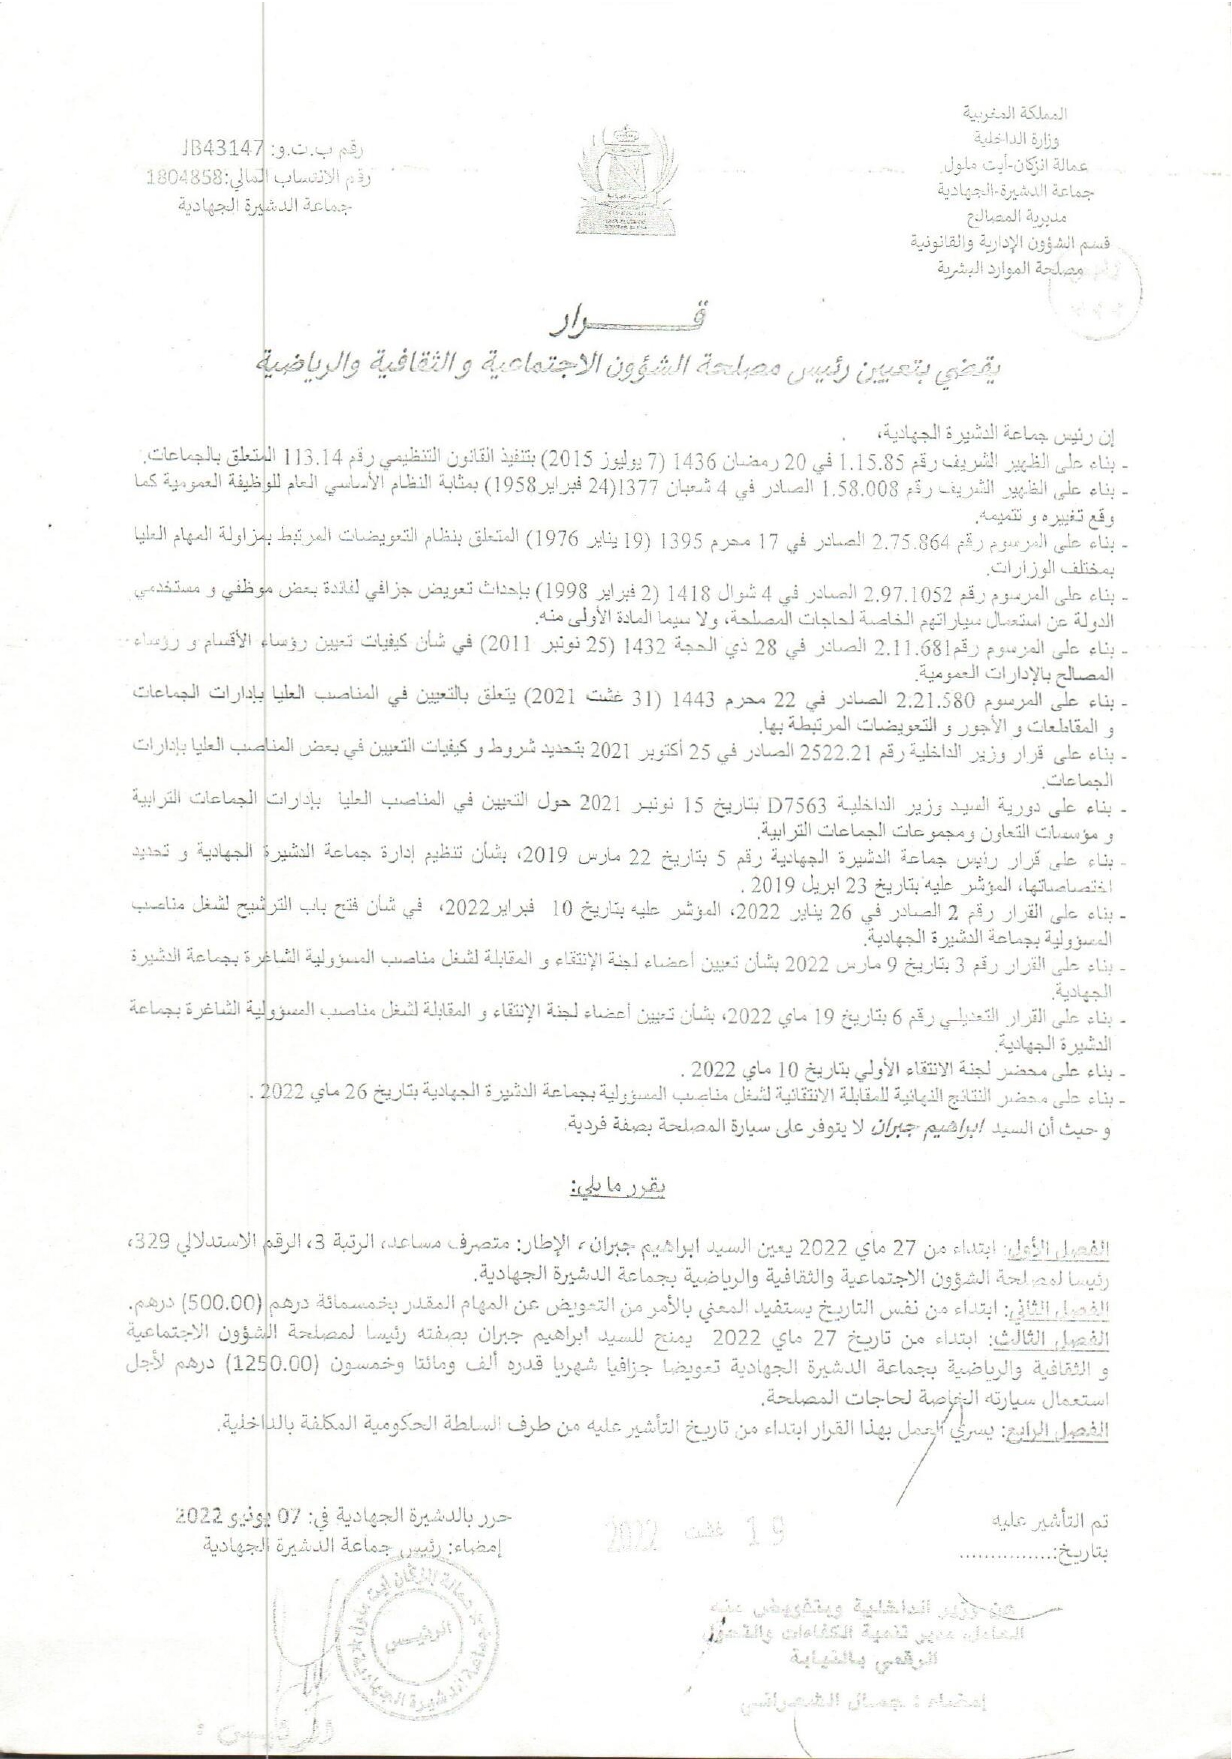 المملكة المغربية
وزارة الداخلية
عمالة انزكان-أيت ملول
جماعة الدشيرة-الجهادية
مديرية المصالح
قسم الشؤون الإدارية والقانونية
مصلحة الموارد البشرية
رقم ب.ت.و: JB43147
رقم الانتساب المالي:1804858
جماعة الدشيرة الجهادية
قــــــرار
يقضي بتعيين رئيس مصلحة الشؤون الاجتماعية و الثقافية والرياضية
إن رئيس جماعة الدشيرة الجهادية،
- بناء على الظهير الشريف رقم 1.15.85 في 20 رمضان 1436 (7 يوليوز 2015) بتنفيذ القانون التنظيمي رقم 113.14 المتعلق بالجماعات.
- بناء على الظهير الشريف رقم 1.58.008 الصادر في 4 شعبان 1377(24 فبراير1958) بمثابة النظام الأساسي العام للوظيفة العمومية كما
وقع تغييره و تتميمه.
- بناء على المرسوم رقم 2.75.864 الصادر في 17 محرم 1395 (19 يناير 1976) المتعلق بنظام التعويضات المرتبط بمزاولة المهام العليا
بمختلف الوزارات.
- بناء على المرسوم رقم 2.97.1052 الصادر في 4 شوال 1418 (2 فبراير 1998) بإحداث تعويض جزافي لفائدة بعض موظفي و مستخدمي
الدولة عن استعمال سياراتهم الخاصة لحاجات المصلحة، ولا سيما المادة الأولى منه.
- بناء على المرسوم رقم2.11.681 الصادر في 28 ذي الحجة 1432 (25 نونبر 2011) في شأن كيفيات تعيين رؤساء الأقسام و رؤساء
المصالح بالإدارات العمومية.
- بناء على المرسوم 2.21.580 الصادر في 22 محرم 1443 (31 غشت 2021) يتعلق بالتعيين في المناصب العليا بإدارات الجماعات
و المقاطعات و الأجور و التعويضات المرتبطة بها.
- بناء على قرار وزير الداخلية رقم 2522.21 الصادر في 25 أكتوبر 2021 بتحديد شروط و كيفيات التعيين في بعض المناصب العليا بإدارات
الجماعات.
- بناء على دورية السيد وزير الداخلية D7563 بتاريخ 15 نونبر 2021 حول التعيين في المناصب العليا بإدارات الجماعات الترابية
و مؤسسات التعاون ومجموعات الجماعات الترابية.
- بناء على قرار رئيس جماعة الدشيرة الجهادية رقم 5 بتاريخ 22 مارس 2019، بشأن تنظيم إدارة جماعة الدشيرة الجهادية و تحديد
اختصاصاتها، المؤشر عليه بتاريخ 23 ابريل 2019 .
- بناء على القرار رقم 2 الصادر في 26 يناير 2022، المؤشر عليه بتاريخ 10 فبراير2022، في شأن فتح باب الترشيح لشغل مناصب
المسؤولية بجماعة الدشيرة الجهادية.
- بناء على القرار رقم 3 بتاريخ 9 مارس 2022 بشأن تعيين أعضاء لجنة الإنتقاء و المقابلة لشغل مناصب المسؤولية الشاغرة بجماعة الدشيرة
الجهادية.
- بناء على القرار التعديلي رقم 6 بتاريخ 19 ماي 2022، بشأن تعيين أعضاء لجنة الإنتقاء و المقابلة لشغل مناصب المسؤولية الشاغرة بجماعة
الدشيرة الجهادية.
- بناء على محضر لجنة الانتقاء الأولي بتاريخ 10 ماي 2022 .
- بناء على محضر النتائج النهائية للمقابلة الانتقائية لشغل مناصب المسؤولية بجماعة الدشيرة الجهادية بتاريخ 26 ماي 2022 .
و حيث أن السيد ابراهيم جبران لا يتوفر على سيارة المصلحة بصفة فردية.
يقرر ما يلي:
الفصل الأول: ابتداء من 27 ماي 2022 يعين السيد ابراهيم جبران، الإطار: متصرف مساعد، الرتبة 3، الرقم الاستدلالي 329،
رئيسا لمصلحة الشؤون الاجتماعية والثقافية والرياضية بجماعة الدشيرة الجهادية.
الفصل الثاني: ابتداء من نفس التاريخ يستفيد المعني بالأمر من التعويض عن المهام المقدر بخمسمائة درهم (500.00) درهم.
الفصل الثالث: ابتداء من تاريخ 27 ماي 2022 يمنح للسيد ابراهيم جبران بصفته رئيسا لمصلحة الشؤون الاجتماعية
و الثقافية والرياضية بجماعة الدشيرة الجهادية تعويضا جزافيا شهريا قدره ألف ومائتا وخمسون (1250.00) درهم لأجل
استعمال سيارته الخاصة لحاجات المصلحة.
الفصل الرابع: يسري العمل بهذا القرار ابتداء من تاريخ التأشير عليه من طرف السلطة الحكومية المكلفة بالداخلية.
تم التأشير عليه
بتاريخ:...............
19 غشت 2022
حرر بالدشيرة الجهادية في: 07 يونيو 2022
إمضاء: رئيس جماعة الدشيرة الجهادية
عن وزير الداخلية وبتفويض منه
العامل مدير تنمية الكفاءات والتحول
الرقمي بالنيابة
إمضاء : جمال الشعراني
الرئيس
الرئيس :